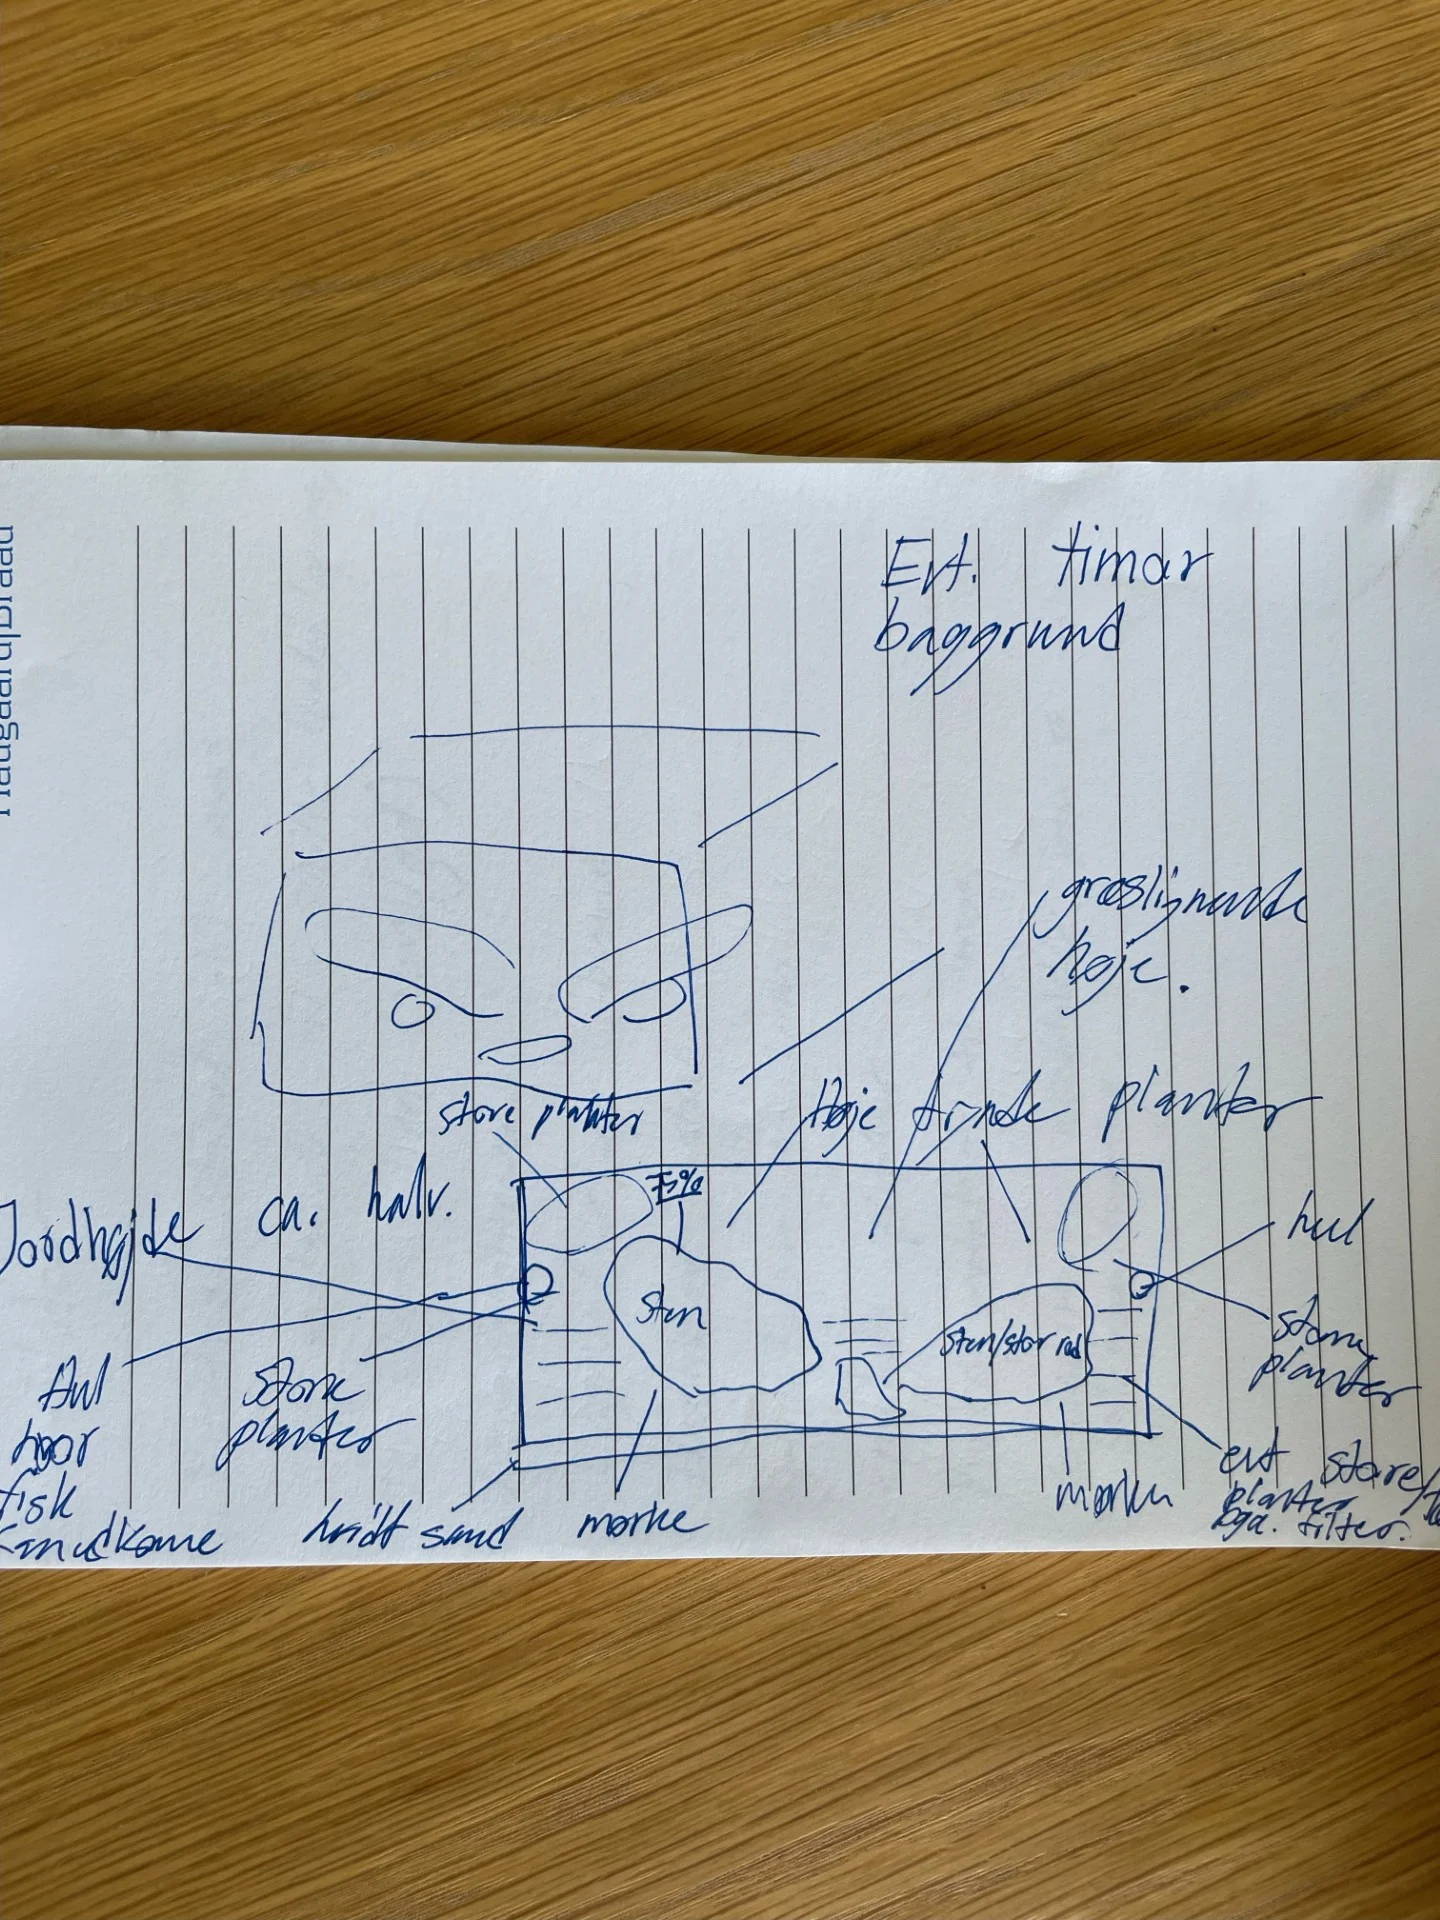 Evt. timar
baggrund
græslignende
høje.
store planter
Høje tynde planter
Jordhøjde ca. halv.
hul
Sten
Sten/stor rod
store
planter
hul
hvor
fisk
kan udkomme
store
planter
hvidt sand
mørke
mørke
evt store/
planter
pga. filter.